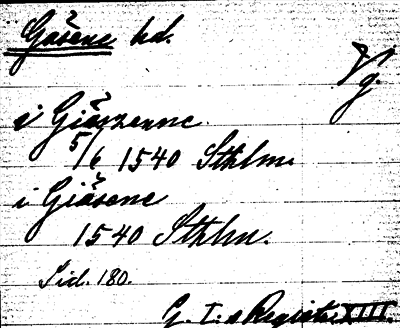 Gåsene hd.
Vg.
i Giåszenne
5/6 1540 Sthlm.
i Giåsene
1540 Sthlm.
Sid. 180.
G. I:s Registr. XIII.